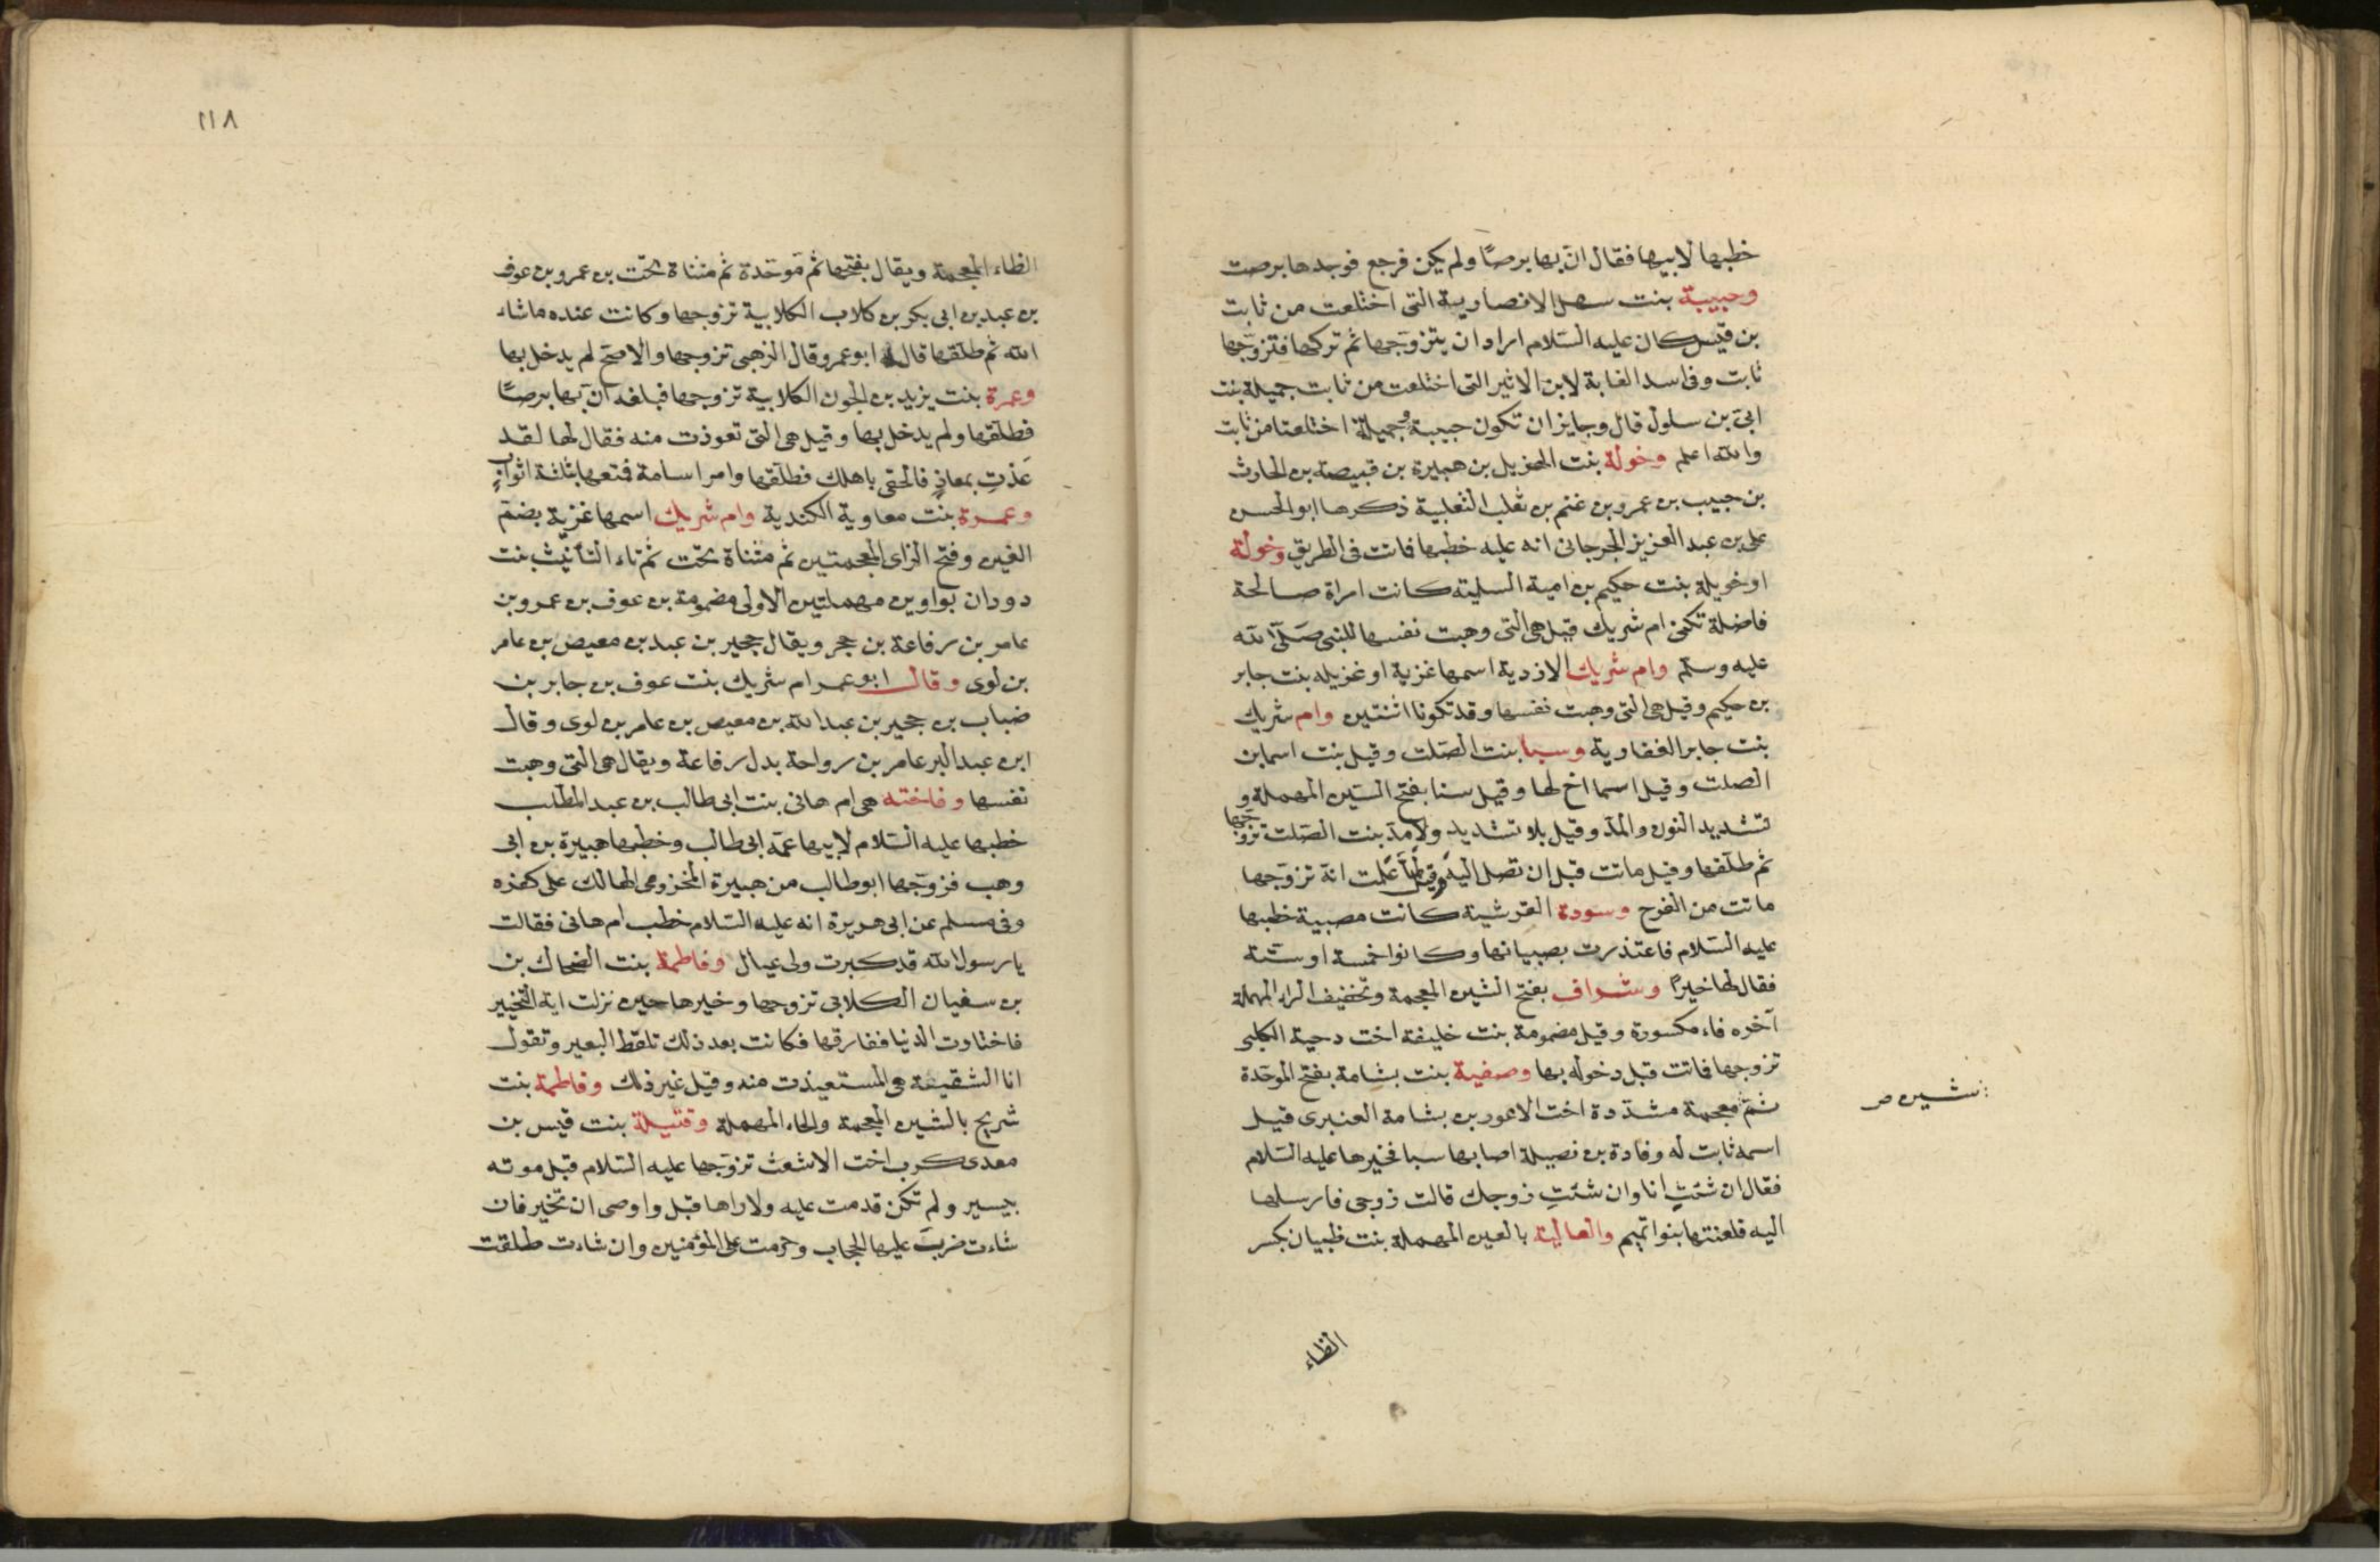 خطبها لابيها فقال ان بها برصًا ولم يكن فرجع فوجدها برصت
وحبيبة بنت سهل الانصارية التى اختلعت من ثابت
بن قيس كان عليه السّلام اراد ان يتزوّجها ثم تركها فتزوّجها
ثابت وفى اسد الغابة لابن الاثير التى اختلعت من ثابت جميلة بنت
ابىّ بن سلول قال وجايز ان تكون حبيبة وجميلة اختلعتا من ثابت
والله اعلم وخولة بنت الهزيل بن هبيرة بن قبيصه بن الحارث
بن حبيب بن عمرو بن غنم بن ثعلب الثعلبية ذكرها ابو الحسن
على بن عبد العزيز الجرجانى انه عليه خطبها فاتت فى الطريق وخولة
او خويلة بنت حكيم بن امية السلمية كانت امراة صالحة
فاضلة تكنى ام شريك قيل هى التى وهبت نفسها للنبى صلّى الله
عليه وسلم وام شريك الازدية اسمها غزية او غزيله بنت جابر
بن حكيم وقيل هى التى وهبت نفسها وقد تكونا اثنتين وام شريك
بنت جابر الغفارية وسبا بنت الصّلت وقيل بنت اسما بن
الصلت وقيل اسما اخ لها وقيل سنا بفتح السّين المهملة و
تشديد النون والمدّ وقيل بلا تشديد ولا مدّ بنت الصّلت تزوّجها
ثم طلّقها وقيل ماتت قبل ان تصل اليه وقيل لمّا علمت انّه تزوّجها
ماتت من الفرح وسودة القرشية كانت مصبية خطبها
عليه السّلام فاعتذرت بصبيانها وكانوا خمسة او ستّة
فقال لها خيرًا وشراف بفتح الشين المعجمة وتخفيف الراء المهملة
آخره فاء مكسورة وقيل مضمومة بنت خليفة اخت دحية الكلبى
تزوجها فماتت قبل دخوله بها وصفية بنت بشامة بفتح الموحّدة
ثمّ معجمة مشدّدة اخت الاعور بن بشامة العنبرى قيل
: شين صر
اسمه ثابت له وفادة بن نصيلة اصابها سبا فخيرها عليه السّلام
فقال ان شئتِ انا وان شئتِ زوجك قالت زوجى فارسلها
اليه فلعنتها بنوا تميم والعالية بالعين المهملة بنت ظبيان بكسر
الظاء
١١٨
الظاء المعجمة ويقال بفتحها ثم موحّدة ثم مثناة تحت بن عمرو بن عوف
بن عبد بن ابى بكر بن كلاب الكلابية تزوجها وكانت عنده ما شاء
الله ثم طلّقها قاله ابو عمرو وقال الزهبى تزوجها والاصحّ لم يدخل بها
وعمرة بنت يزيد بن الجون الكلابية تزوجها فبلغه انّ بها برصًا
فطلقها ولم يدخل بها وقيل هى التى تعوذت منه فقال لها لقد
عذتِ بمعاذٍ فالحقى باهلك فطلّقها وامر اسامة فمتعها بثلثة اثوابٍ
وعمرة بنت معاوية الكندية وام شريك اسمها غزيّة بضمّ
الغين وفتح الزاى المعجمتين ثم مثناة تحت ثم تاء التأنيث بنت
دودان بواوين مهملتين الاولى مضمومة بن عوف بن عمرو بن
عامر بن رفاعة بن حجر ويقال حجير بن عبد بن معيص بن عامر
بن لوى وقال ابو عمر ام شريك بنت عوف بن جابر بن
ضباب بن حجير بن عبد الله بن معيص بن عامر بن لوى وقال
ابن عبد البر عامر بن رواحة بدل رفاعة ويقال هى التى وهبت
نفسها وفاخته هى ام هانى بنت ابى طالب بن عبد المطلب
خطبها عليه السّلام لابيها عمّه ابى طالب وخطبها هبيرة بن ابى
وهب فزوّجها ابو طالب من هبيرة المخزومى الهالك على كفره
وفى مسلم عن ابى هريرة انه عليه السّلام خطب ام هانى فقالت
يا رسول الله قد كبرت ولى عيال وفاطمة بنت الضحاك بن
بن سفيان الكلابى تزوجها وخيرها حين نزلت اية التّخيير
فاختارت الدنيا ففارقها فكانت بعد ذلك تلقط البعير وتقول
انا الشقيقة هى المستعيذت منه وقيل غير ذلك وفاطمة بنت
شريح بالشين المعجمة والحاء المهملة وقتيلة بنت قيس بن
معدى كرب اخت الاشعث تزوّجها عليه السّلام قبل موته
بيسير ولم تكن قدمت عليه ولا راها قبل واوصى ان تخير فان
شاءت ضربَ عليها الحجاب وحرمت على المؤمنين وان شاءت طلقت